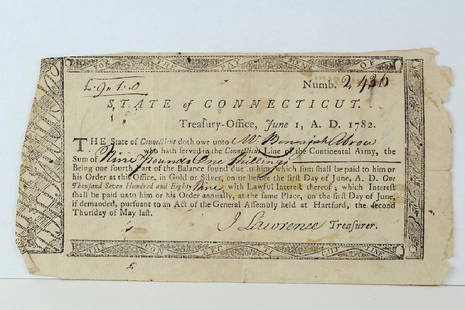 FOR THE PAY OF
Numb. 2,436
£ 9 „ 1 „ 0
STATE of CONNECTICUT.
Treasury-Office, June 1, A. D. 1782.
THE State of Connecticut doth owe unto Mr Benajah
who hath served in the Connecticut Line of the Continental Army, the
Sum of Nine pounds One Shillings
Being one fourth Part of the Balance found due to him, which sum shall be paid to him or
his Order at this Office, in Gold or Silver, on or before the first Day of June, A. D. One
Thousand Seven Hundred and Eighty with Lawful Interest thereof; which Interest
shall be paid unto him or his Order annually, at the same Place, on the first Day of June,
if demanded, pursuant to an Act of the General Assembly held at Hartford, the second
Thursday of May last.
J Lawrence Treasurer.
£